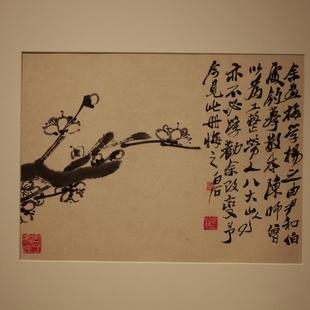 余畫梅學楊之由尹和伯
處鈎摹數本陳師曾
以爲工整勞人八大山人
亦不必學勸余改變予
今見此冊悔之白石